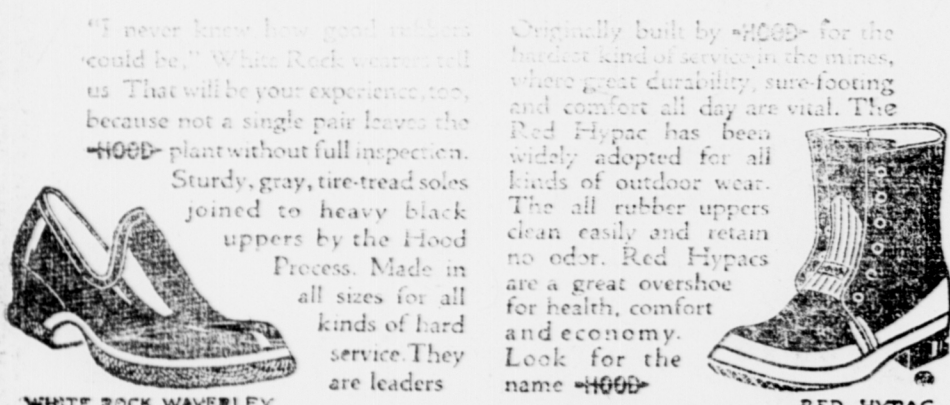 "I never knew how good rubbers
could be," White Rock wearers tell
us That will be your experience, too,
because not a single pair leaves the
HOOD plant without full inspection.
Sturdy, gray, tire-tread soles
joined to heavy black
uppers by the Hood
Process. Made in
all sizes for all
kinds of hard
service. They
are leaders
WHITE ROCK WAVERLEY
Originally built by HOOD for the
hardest kind of service in the mines,
where great durability, sure-footing
and comfort all day are vital. The
Red Hypac has been
widely adopted for all
kinds of outdoor wear.
The all rubber uppers
clean easily and retain
no odor. Red Hypacs
are a great overshoe
for health, comfort
and economy.
Look for the
name HOOD
RED HYPAC